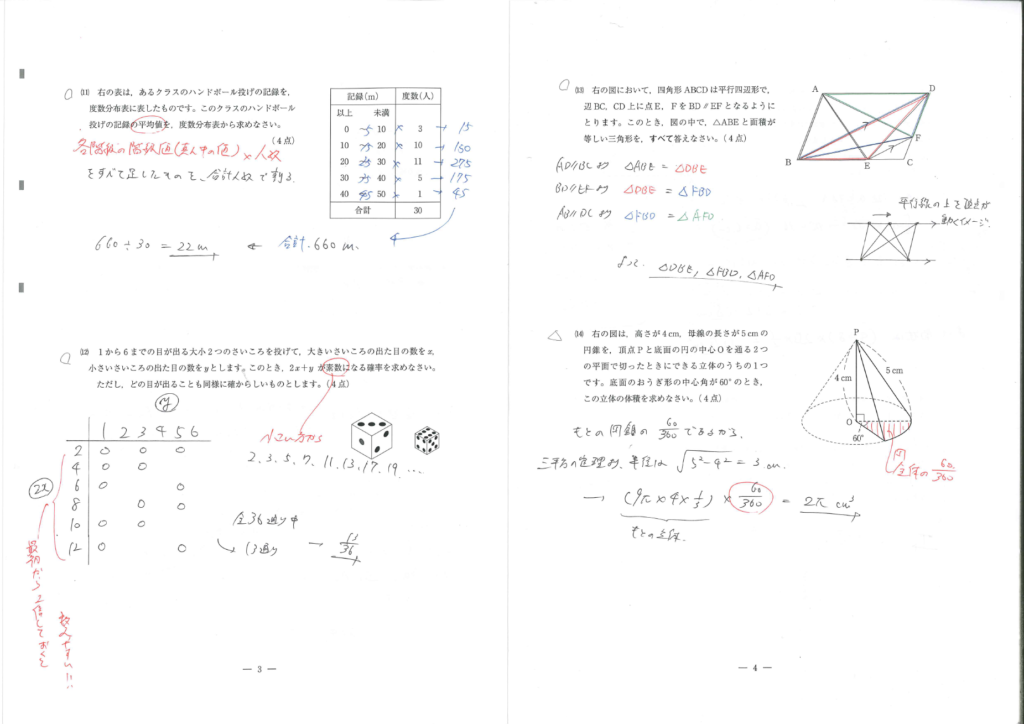 ⑾ 右の表は,あるクラスのハンドボール投げの記録を,
度数分布表に表したものです。このクラスのハンドボール
投げの記録の平均値を,度数分布表から求めなさい。
(4点)
各階級の階級値(真ん中の値)×人数
をすべて足したものを、合計人数で割る。
記録(m) 度数(人)
以上 未満
0 5 10 × 3 → 15
10 15 20 × 10 → 150
20 25 30 × 11 → 275
30 35 40 × 5 → 175
40 45 50 × 1 → 45
合計 30
660÷30 = 22m ← 合計 660m.
⑿ 1から6までの目が出る大小2つのさいころを投げて,大きいさいころの出た目の数をx,
小さいさいころの出た目の数をyとします。このとき,2x+y が素数になる確率を求めなさい。
ただし,どの目が出ることも同様に確からしいものとします。(4点)
y
1 2 3 4 5 6
2 ○ ○ ○
4 ○ ○
6 ○ ○
8 ○ ○
10 ○ ○
12 ○ ○
2x
小さい方から
2, 3, 5, 7, 11, 13, 17, 19 …
全36通り中
→ 13通り → 13/36
最初から2倍しておくと
数えやすい!!
— 3 —
⒀ 右の図において,四角形ABCDは平行四辺形で,
辺BC,CD上に点E,FをBD∥EFとなるように
とります。このとき,図の中で,△ABEと面積が
等しい三角形を,すべて答えなさい。(4点)
A D
F
B E C
AD∥BCより △ABE = △DBE
BD∥EFより △DBE = △FBD
AB∥DCより △FBD = △AFD
平行線の上を頂点が
動くイメージ
よって △DBE, △FBD, △AFD
△
⒁ 右の図は,高さが4cm,母線の長さが5cmの
円錐を,頂点Pと底面の円の中心Oを通る2つ
の平面で切ったときにできる立体のうちの1つ
です。底面のおうぎ形の中心角が60°のとき,
この立体の体積を求めなさい。(4点)
P
4cm 5cm
O
60°
円
全体の 60/360
もとの円錐の 60/360 であるから、
三平方の定理より、半径は √5²−4² = 3 cm.
→ (9π×4×1/3) × 60/360 = 2π cm³
もとの全体.
— 4 —